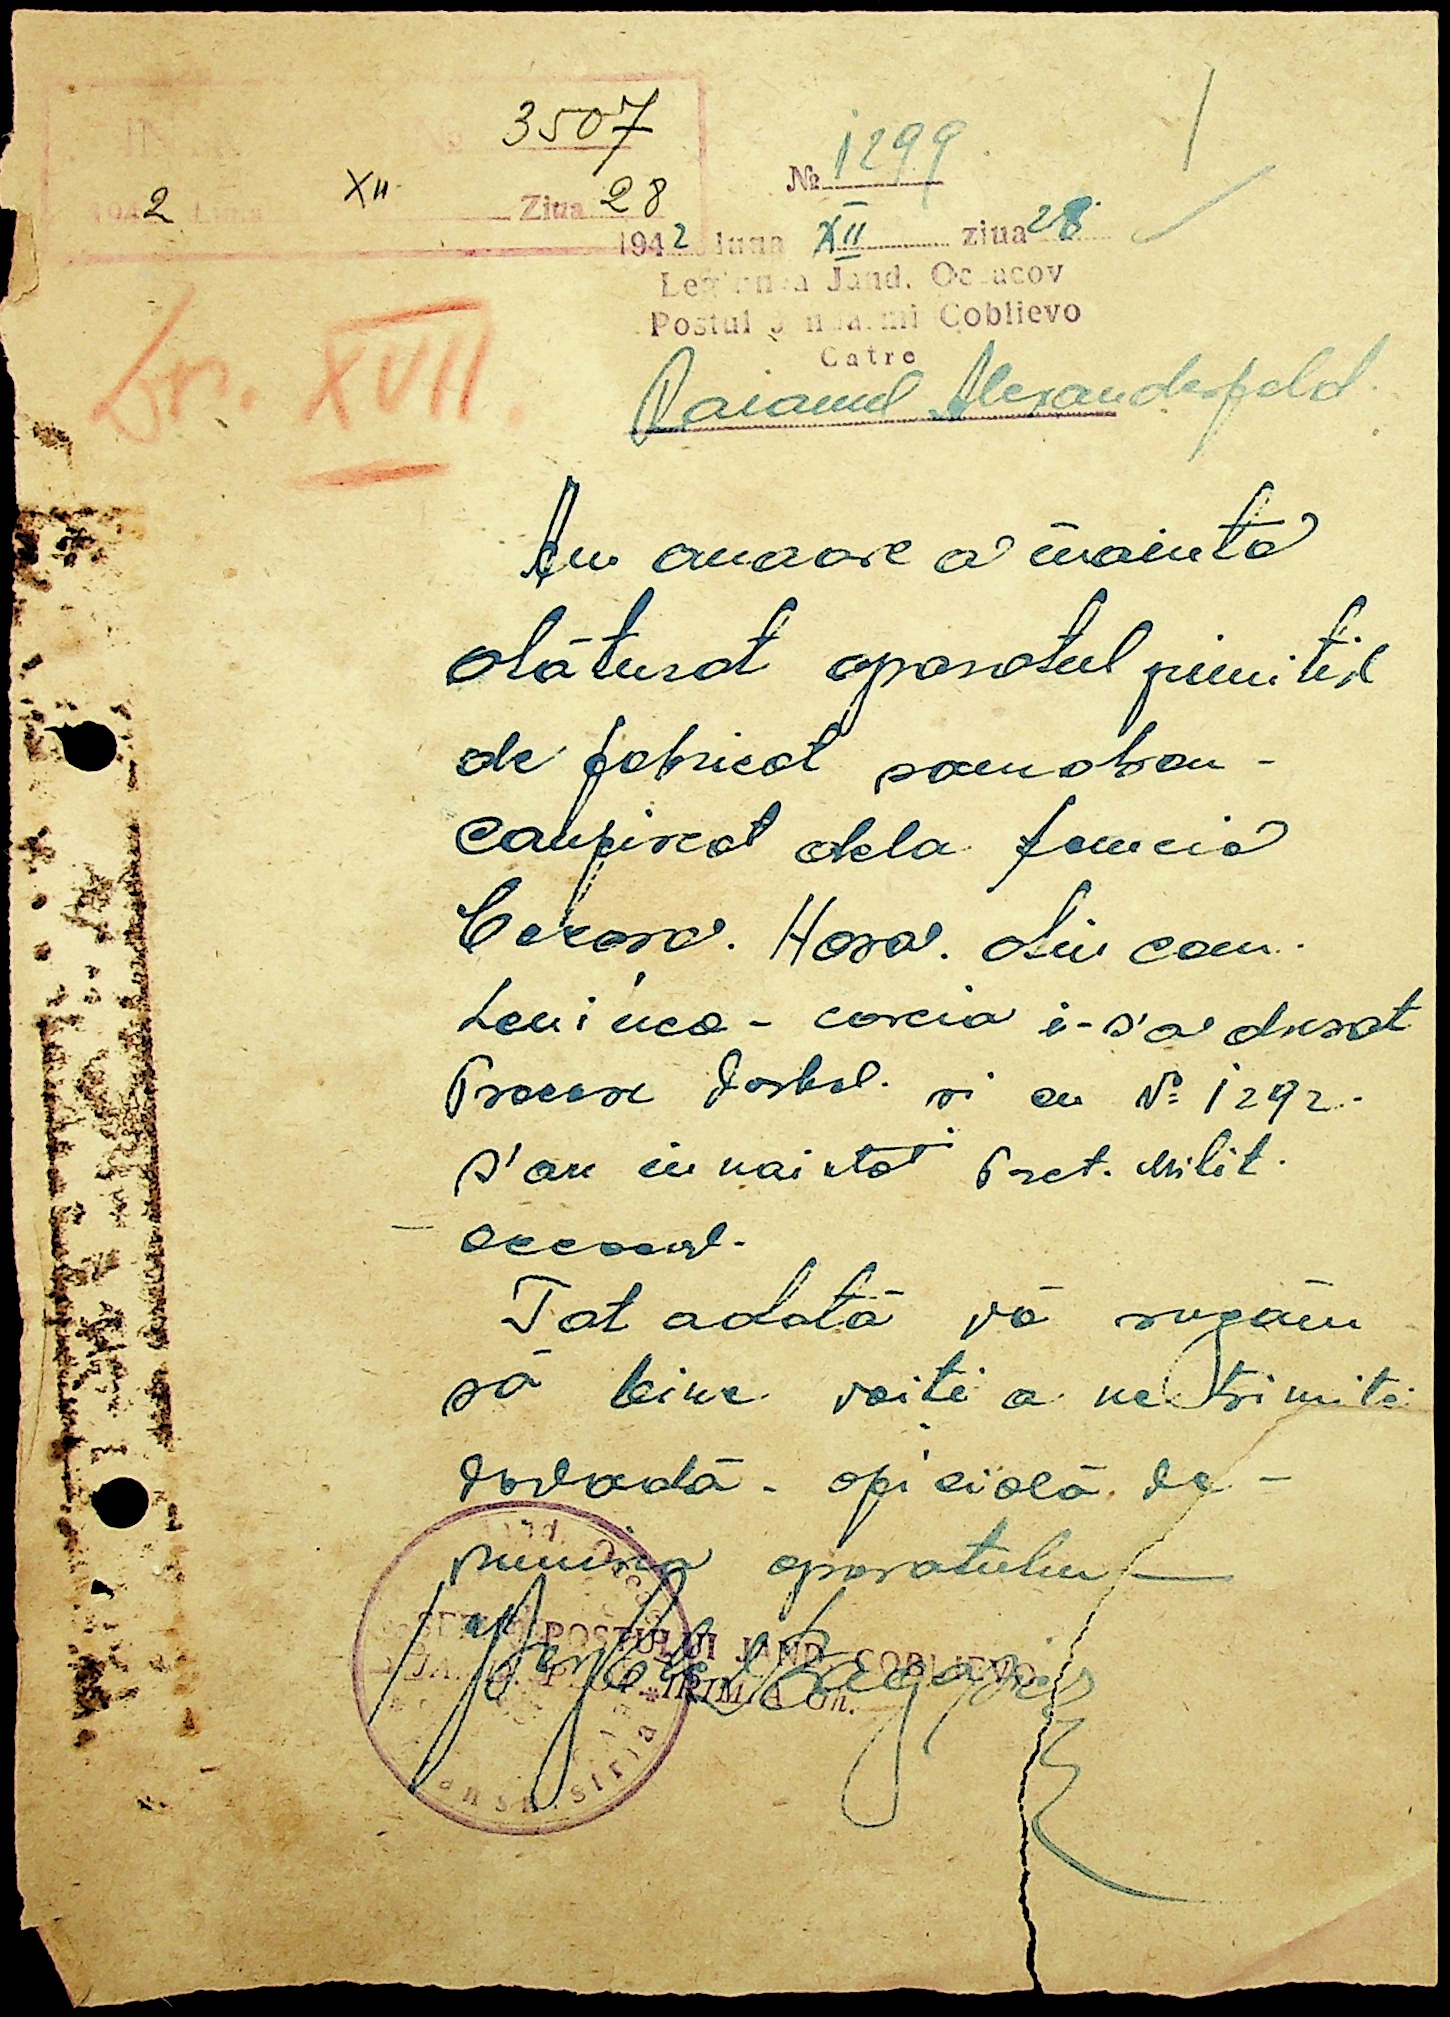 3507
1942 Luna XII Ziua 28
№ 1299
1942 luna XII ziua 28
Legiunea Jand. Oceacov
Postul Jandarmi Coblievo
Catre
Raionul Alexanderfeld
Dos. XVII.
Am onoare a înainta
alăturat aparatul primitiv
de fabricat samahon -
confiscat dela femeia
din com.
Leninca - careia i-s'a dresat
Proces Verbal. și cu № 1292.
s'au innaintat Pret. Milit.
Oceacov.
Tot odată vă rugăm
să bine voiți a ne trimite
dovadă - oficială de -
primirea aparatului
ȘEFUL POSTULUI JAND. COBLIEVO
IRIMIA Gh.